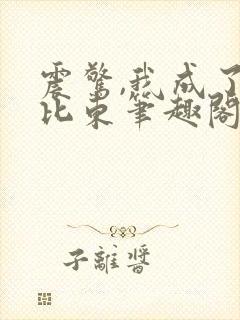 震驚,我成了
比東筆趣閣
子離醬